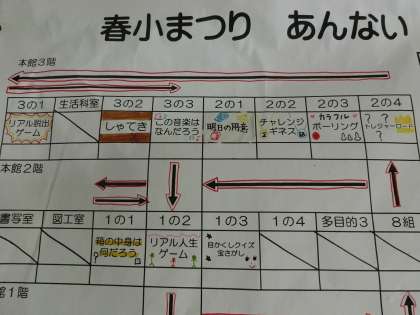 春小まつり あんない
本館3階
3の1 生活科室 3の2 3の3 2の1 2の2 2の3 2の4
リアル脱出ゲーム しゃてき この音楽はなんだろう 明日の用意 チャレンジギネス カラフルボーリング ? ? トレジャーロード ?
本館2階
書写室 図工室 1の1 1の2 1の3 1の4 多目的3 8組
箱の中身は何だろう リアル人生ゲーム 目かくしクイズ宝さがし
館1階